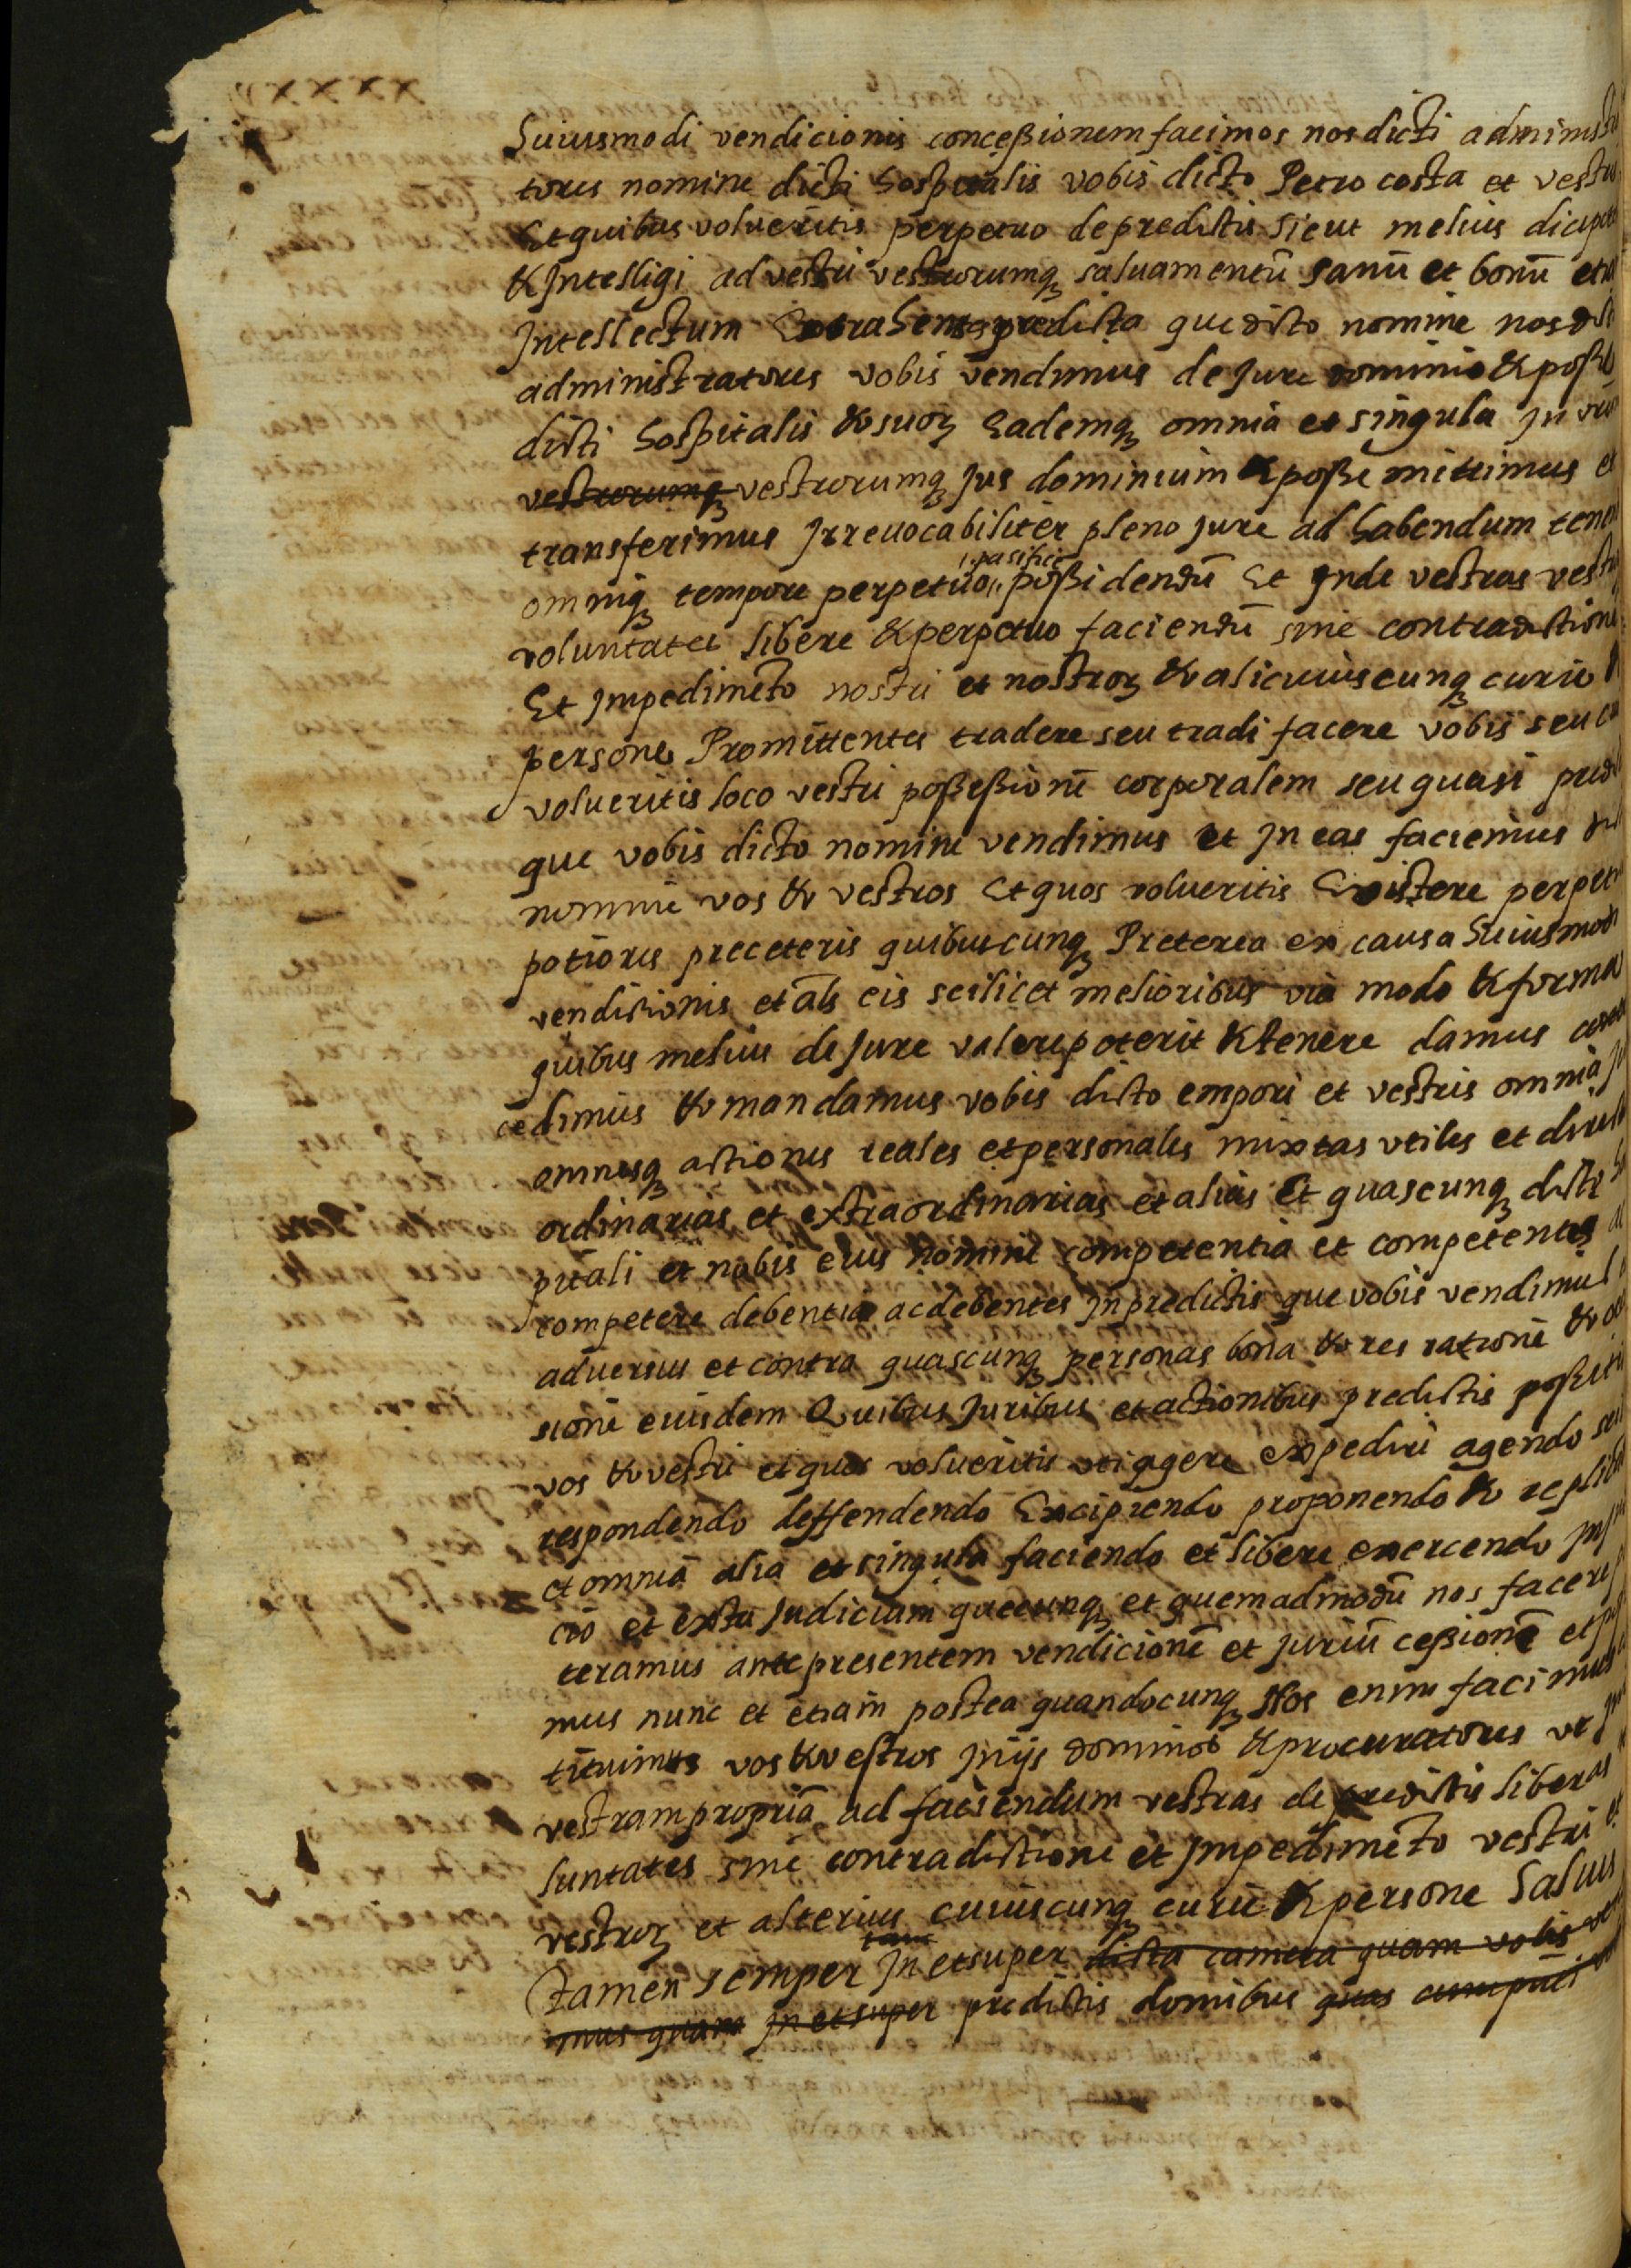 huiusmodi vendicionis conceßionem facimos nos dicti administra
tores nomine dicti hospitalis vobis dicto Petro costa et vestris
Et quibus volueritis perpetuo de predictis sicut melius dici pot
& Intelligi ad vestri vestrorumq saluamentū sanū et bonū et
Intellectum Extrahentes predicta que dicto nomine nos dicti
administratores vobis vendimus de Jure dominio & poße
dicti hospitalis & suoꝝ Eademq omnia et singula In
vestrorumq vestrorumq Jus dominium & poße mittimus et
transferimus Irreuocabiliter pleno Jure ad habendum tenen
omniq tempore perpetuo pasifice poßidendū Et Inde vestras vestro
voluntates libere & perpetuo faciendū sine contradictione
Et Impedimēto nostri et nostroꝝ & alicuiuscunq curie &
persone Promittentes tradere seu tradi facere vobis seu cu
volueritis loco vestri poßeßionē corporalem seu quasi pred
que vobis dicto nomine vendimus et In eas faciemus
nomine vos & vestros Et quos volueritis Existere perpetu
potiores preceteris quibuscunq Preterea ex causa huiusmodi
vendicionis et als eis scilicet melioribus via modo & forma
quibus melius de Jure valere poterit & tenere damus
cedimus & mandamus vobis dicto empori et vestris omnia Ju
omnesq actiones reales et personales mixtas vtiles et direct
ordinarias et extraordinarias et alias Et quascunq dicti hos
pitali et nobis eius nomine competentia et competentes ac
competere debentia ac debentes In predictis que vobis vendimus
aduersus et contra quascunq personas bona & res ratione & oc
sione eiusdem Quibus Juribus et actionibus predictis poßitis
vos & vestri et quos volueritis vti agere expediri agendo seu
respondendo deffendendo Excipiendo proponendo & replica
et omnia alia et singula faciendo et libere exercendo In
cio et extra Judicium quecunq et quemadmodū nos facere
teramus ante presentem vendicionē et Juriū ceßionē et
mus nunc et etiam postea quandocunq Nos enim facimus
tituimus vos & vestros In ijs dominos & procuratores vt In
vestram propriā ad faciendum vestras de predictis liberas
luntates sine contradictione et Impedimēto vestri et
vestroꝝ et alterius cuiuscunq curie & persone Saluis
tamen semper tam In et super dicta camera quam vobis ven
mus quam In et super predictis domibus quas